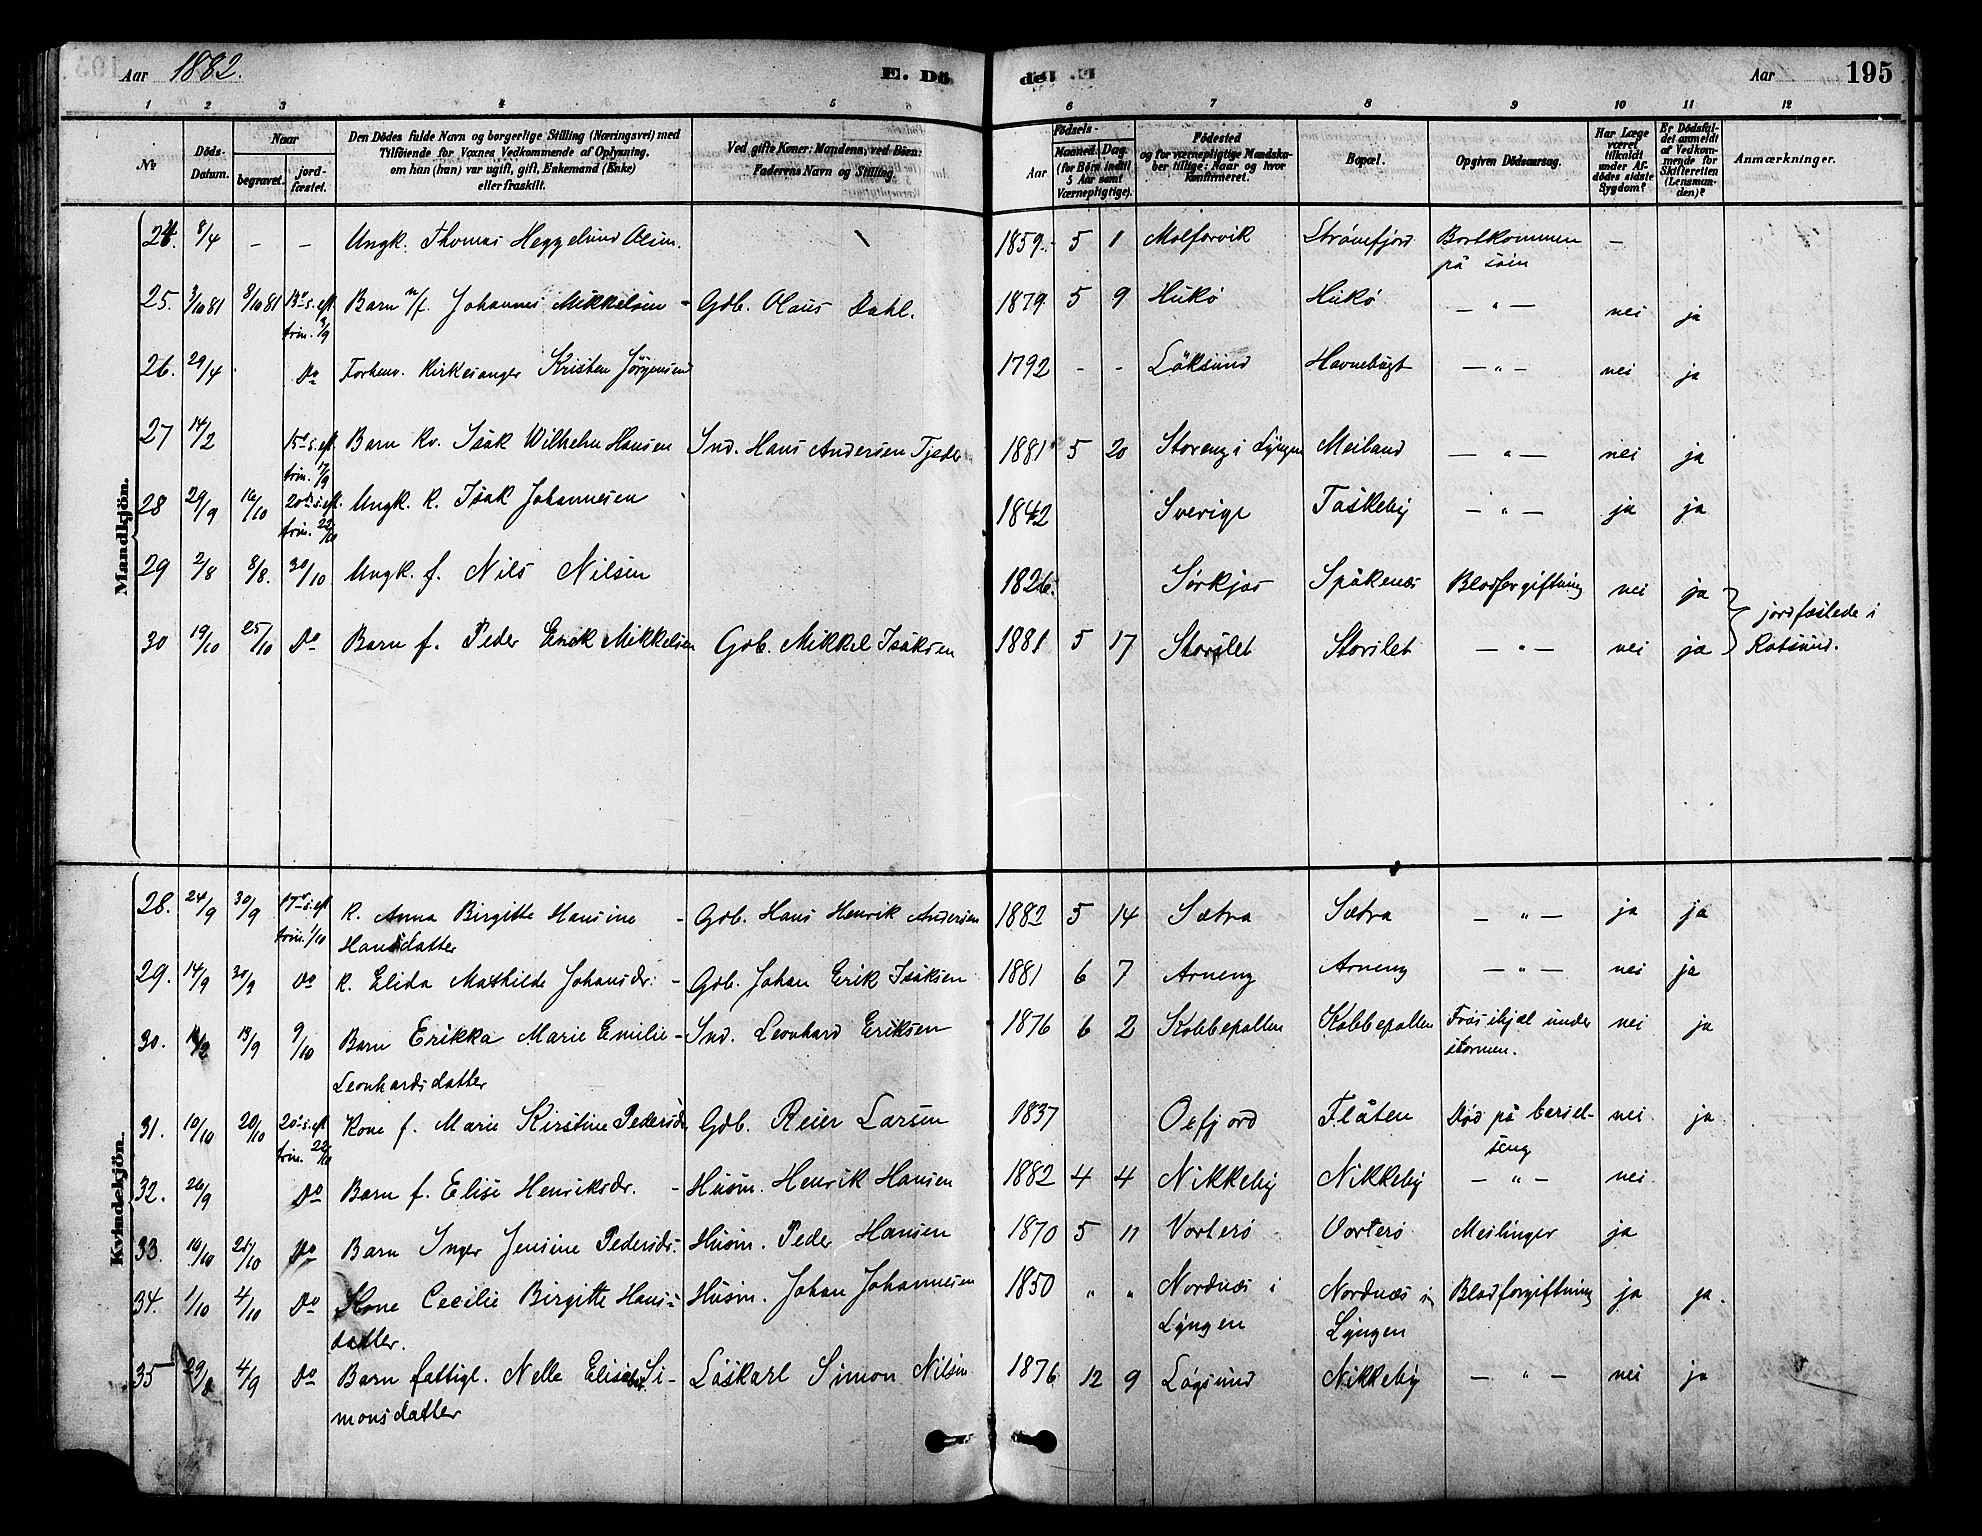 Aar 1882.
E. Dö
de. E.
Aar 195
1 2 3 4 5 6 6 7 8 9 10 11 12
No
Döds-Datum.
Naar
begravet.
jord-fæstet.
Den Dödes fulde Navn og borgerlige Stilling (Næringsvei) med
Tilföiende for Voxnes Vedkommende af Oplysning,
om han (hun) var ugift, gift, Enkemand (Enke)
eller fraskilt.
Ved gifte Koner: Mandens, ved Börn:
Faderens Navn og Stilling.
Födsels-
Aar
Maaned. Dag.
(for Börn indtil
5 Aar samt
Værnepligtige).
Födested
og for værnepligtige Mandska-
ber tillige: Naar og hvor
konfirmeret.
Bopæl.
Opgiven Dödsaarsag.
Har Læge
været
tilkaldt
under Af-
dödes sidste
Sygdom?
Er Dödsfal-
det anmeldt
af Vedkom-
mende for
Skifteretten
(Lensman-
den)?
Anmærkninger.
Mandkjön.
24. 8/4 – – Ungk. Thomas Heggelund Olsen. 1859. 5 1 Molforvik Strömfjord Bortkommen –
på söen
25. 3/10 81 8/10 81 13de s. eft. Barn n/f. Johannes Mikkelsen - Gdb. Olaus Dahl. 1879 5 9 Hukö Hukö – " – nei ja
trin. 3/9
26. 29/4 Do Forhenv. Kirkesanger Kristen Jörgensen 1792 - - Löksund Havnebugt – " – nei ja
27 14/2 15de s. eft. Barn Kv. Isak Wilhelm Hansen Ind. Hans Andersen Tjeder 1881 5 20 Storeng i Lyngen Meiland – " – nei ja
trin. 17/9
28 29/9 16/10 20de s. eft. Ungk. K. Isak Johannesen 1842 Sverige Taskeby – " – ja ja
trin. 22/10
29 2/8 8/8. 30/10 Ungk. f. Nils Nilsen 1826. Sörkjos Spåkenæs Blodforgiftning nei ja jordfæstede i
30 19/10 25/10 Do Barn f. Peder Enok Mikkelsen Gdb. Mikkel Isaksen 1881 5 17 Storslet Storslet – " – nei ja Rotsund.
Kvindekjön.
28. 24/9 30/9 17de s. eft. K. Anna Birgitte Hansine - Gdb. Hans Henrik Andersen 1882 5 14 Sætra Sætra – " – ja ja
trin. 1/10 Hansdatter
29. 14/9 30/9 Do K. Elida Mathilde Johansdr. - Gdb. Johan Erik Isaksen 1881 6 7 Arneng Arneng – " – nei ja
30. 13/9 9/10 Barn Erikka Marie Emilie - Ind. Leonhard Eriksen 1876 6 2 Kobbepollen Kobbepollen Frös ihjæl under nei ja
Leonhardsdatter stormen.
31. 10/10 20/10 20de s. eft. Kone f. Marie Kirstine Pedersdr. Gdb. Reier Larsen 1837 Oxfjord Flåten Död på barsel- nei ja
trin. 22/10 seng
32. 26/9 Do Barn f. Elise Henriksdr. - Husm. Henrik Hansen 1882 4 4 Nikkeby Nikkeby – " – nei
33. 10/10 25/10 Do Barn Inger Jensine Pedersdr. Husm. Peder Hansen 1870 5 11 Vorterö Vorterö Meslinger ja
34. 1/10 4/10 Do Kone Cecilie Birgitte Hans- Husm. Johan Johannesen 1850 " " Nordnæs i Nordnæs i Blodforgiftning ja ja
datter. Lyngen Lyngen
35 29/8 4/9 Do Barn fattigl. Nelle Elisebet Si- Löskarl Simon Nilsen 1876 12 9 Lögsund Nikkeby – " – nei ja
monsdatter